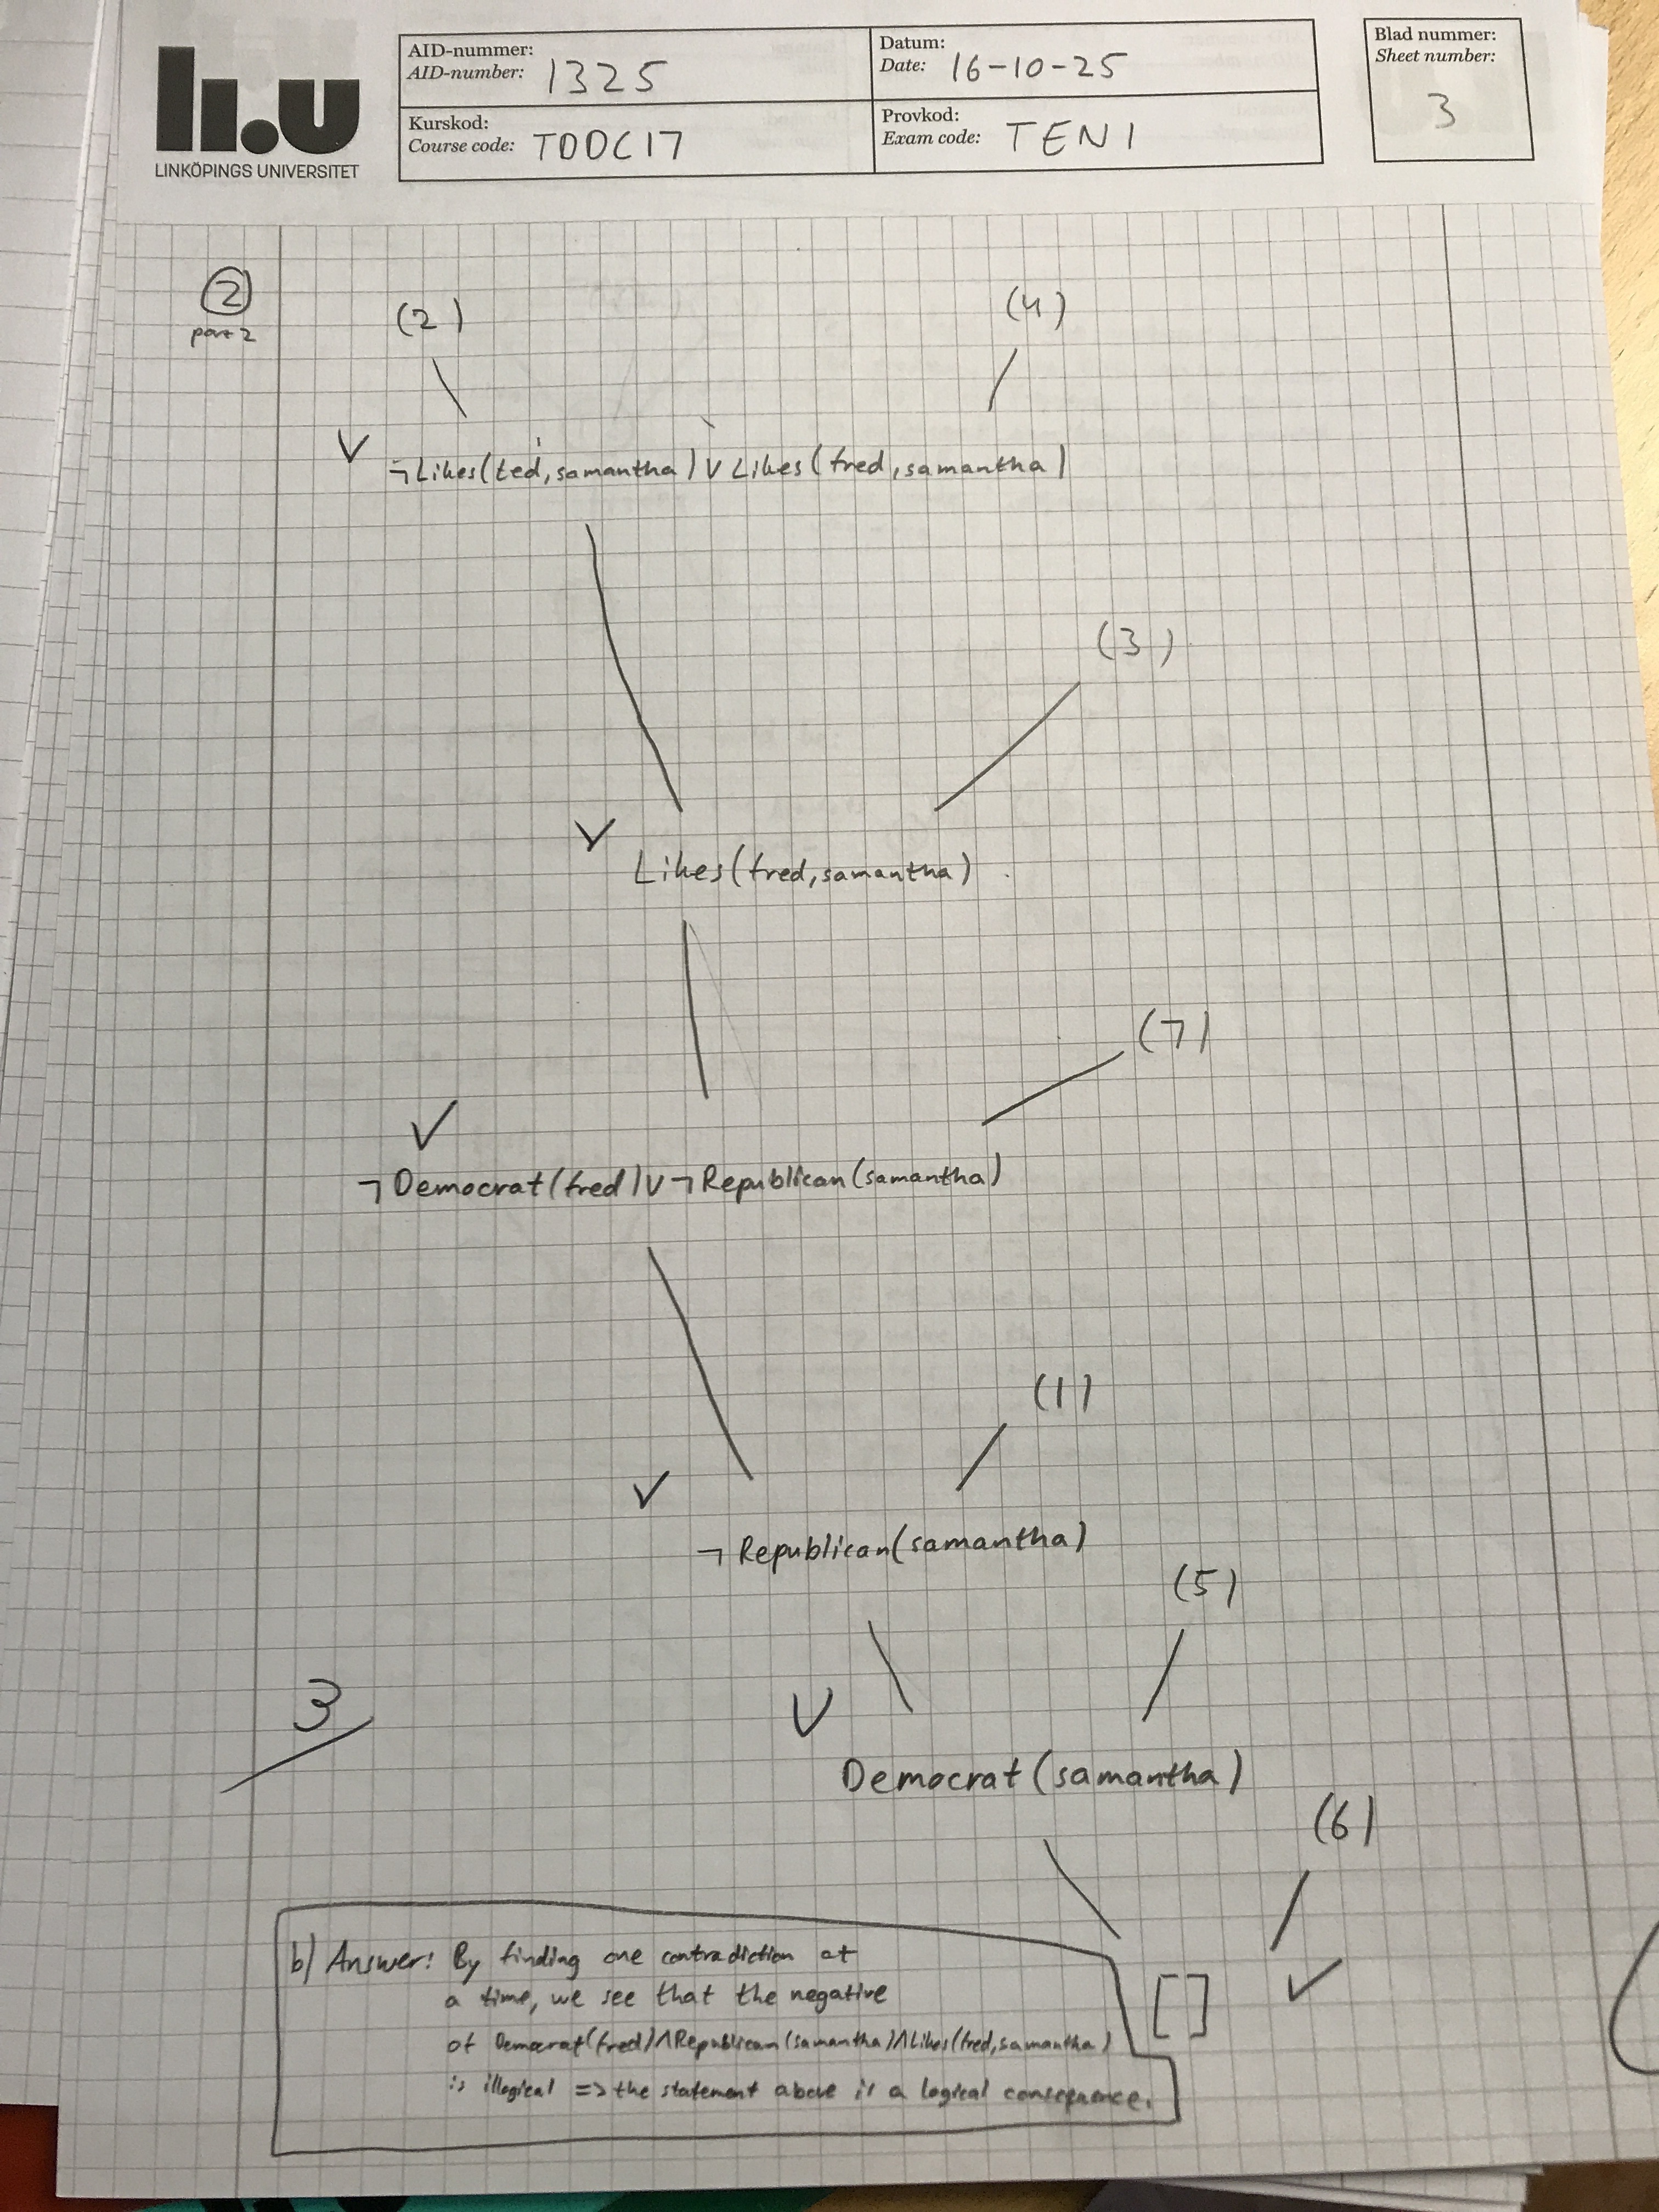 li.u
LINKÖPINGS UNIVERSITET
AID-nummer:
AID-number: 1325
Datum:
Date: 16-10-25
Kurskod:
Course code: TDDC17
Provkod:
Exam code: TEN1
Blad nummer:
Sheet number:
3
2
part 2
(2)
(4)
¬Likes(ted,samantha) ∨ Likes(fred,samantha)
(3)
Likes(fred,samantha)
(7)
¬Democrat(fred)∨¬Republican(samantha)
(1)
¬Republican(samantha)
(5)
3
Democrat(samantha)
(6)
b) Answer: By finding one contradiction at
a time, we see that the negative
of Democrat(fred)∧Republican(samantha)∧Likes(fred,samantha)
is illogical => the statement above is a logical consequence.
[]